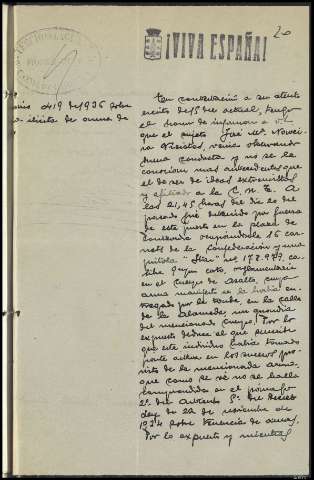 20
¡VIVA ESPAÑA!
419 de 1936 sobre
ilícita de arma de
En contestación a su atento
escrito del 5 del actual, tengo
el honor de informar a V.
que el sujeto José Mª
venía observando
buena conducta y no se le
conocían más antecedentes que
el de ser de ideas extremistas
y afiliado a la C. N. T. A
las 21,45 horas del día 20 del
pasado fué detenido por fuerza
de este puesto en la plaza de
ocupándole 16 car-
nets de la Confederación y una
pistola "Star" nº 178.979, ca-
libre 9 m/m corto, reglamentaria
en el Cuerpo de Asalto, cuya
arma manifestó se la había en-
tregado por la tarde, en la calle
de la Alameda un guardia
del mencionado Cuerpo. Por lo
expuesto deduce el que suscribe
que este individuo había tomado
parte activa en los sucesos pro-
visto de la mencionada arma,
que como se vé no se halla
comprendida en el párrafo
2º del Artículo 5º del Decreto
Ley de 22 de noviembre de
1934 sobre tenencia de armas.
Por lo expuesto y mientras